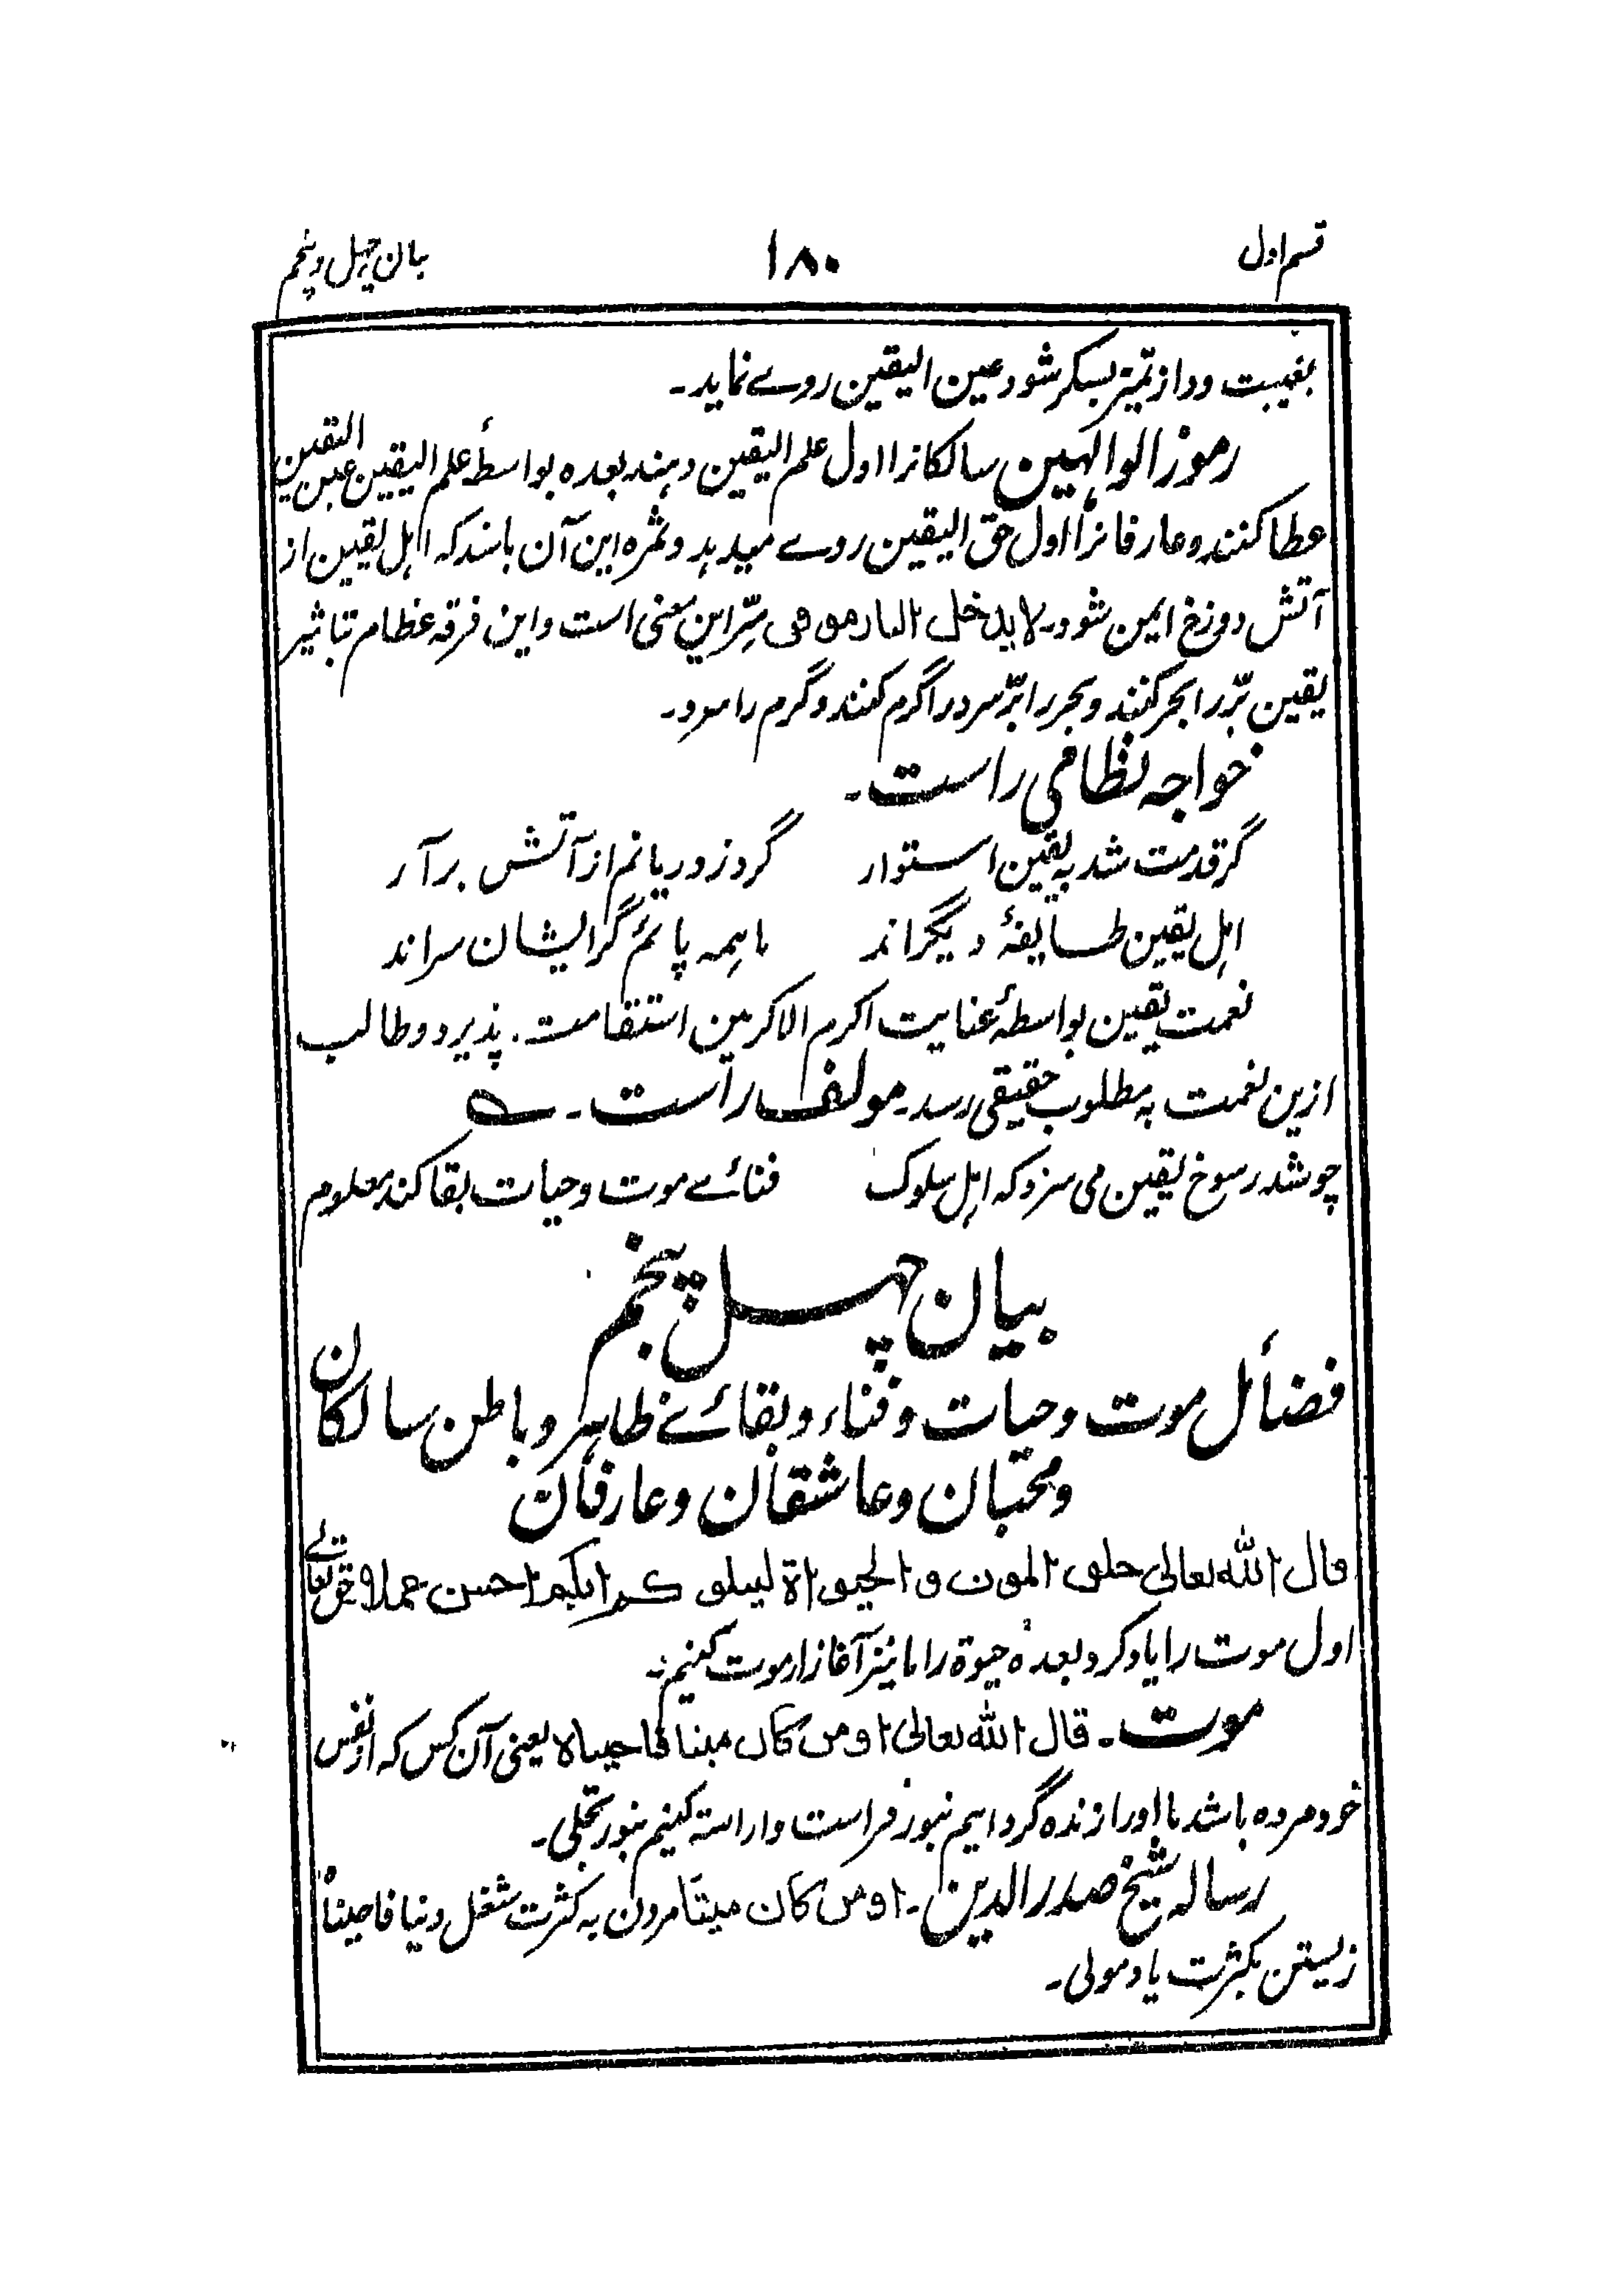 قسم اول ۱۸۰ بیان چہل و پنجم
بغیبت ود از تمیز بسکر شود عین الیقین روے نماید۔
رموز الوالہین سالکانرا اول علم الیقین دہند بعدہ بواسطۂ علم الیقین عین الیقین
عطا کنند و عارفانرا اول حق الیقین روے میدہد و ثمرہ این آن باشد کہ اہل یقین از
آتش دوزخ ایمن شود۔ لا یدخل النار موقن سِرّ این معنی است و این فرقہ عظام تباثیر
یقین بَرّ را بحر کنند و بحر را بَرّ سرد را گرم کنند و گرم را سرد۔
خواجہ نظامی راست۔
گر قدمت شد بہ یقین استوار گرد ز دریا نم از آتش برآر
اہل یقین طایفۂ دیگراند ما ہمہ پائم گر ایشان سراند
نعمت یقین بواسطۂ عنایت اکرم الاکرمین استقامت پذیرد و طالب
ازین نعمت بہ مطلوب حقیقی رسد۔ مولف راست۔
چو شد رسوخ یقین می سزد کہ اہل سلوک فنائے موت و حیات بقا کند معلوم
بیان چہل پنجم
فضائل موت و حیات و فناء و بقائے ظاہر و باطن سالکان
و محبان و عاشقان و عارفان
قال الله تعالی خلق الموت و الحیواة لیبلوکم ایکم احسن عملا حق تعالے
اول موت را یاد کرد بعدہٗ حیوة را ما نیز آغاز از موت کنیم۔
موت۔ قال الله تعالی او من کان میتا فاحیینٰہ یعنی آن کس کہ از نفس
خود مردہ باشد ما اورا زندہ گردانیم بنور فراست و اراستہ کنیم بنور تجلی۔
رسالہ شیخ صدر الدین۔ او من کان میتاً مردن بہ کثرت شغل دنیا فاحییناہ
زیستن بکثرت یاد مولی۔